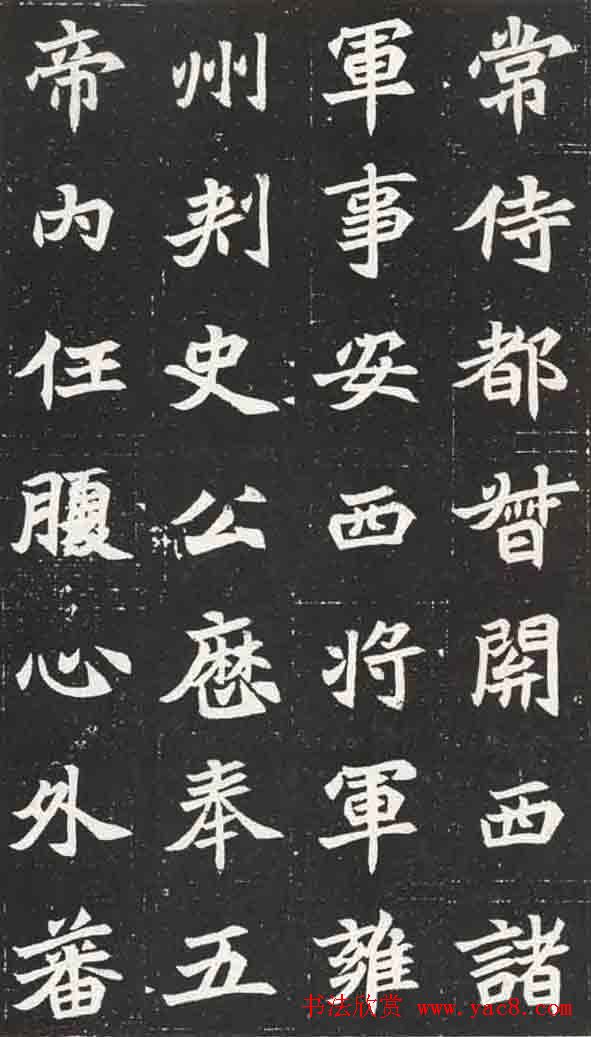 常侍都督開西諸
軍事安西将軍雍
州刾史公歷奉五
帝内任腹心外蕃
书法欣赏 www.yac8.com